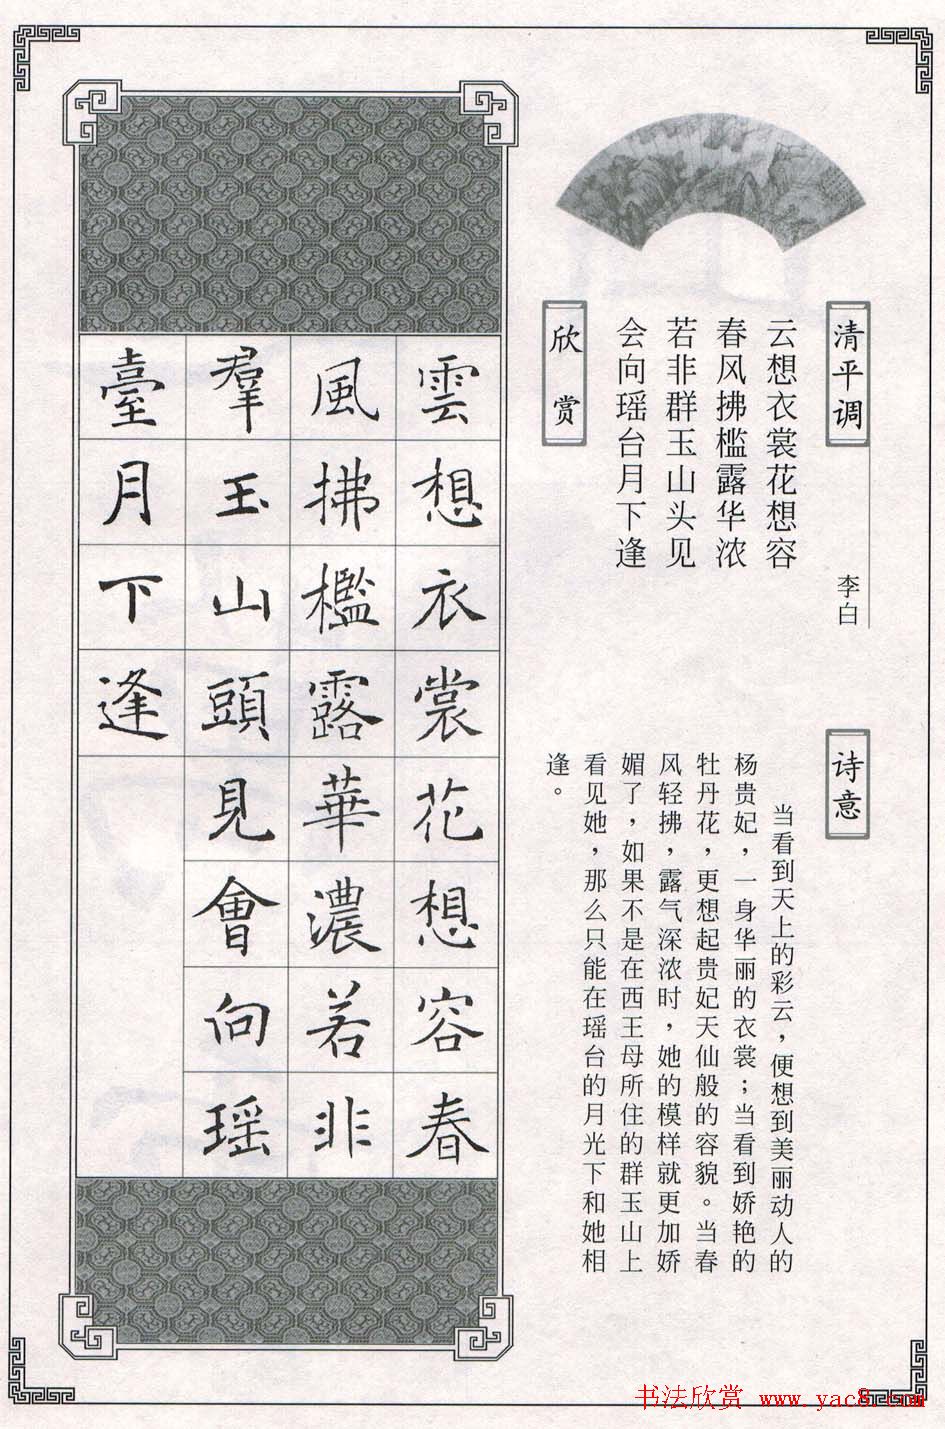 清平调
李白
云想衣裳花想容
春风拂槛露华浓
若非群玉山头见
会向瑶台月下逢
欣赏
诗意
当看到天上的彩云，便想到美丽动人的
杨贵妃，一身华丽的衣裳；当看到娇艳的
牡丹花，更想起贵妃天仙般的容貌。当春
风轻拂，露气深浓时，她的模样就更加娇
媚了，如果不是在西王母所住的群玉山上
看见她，那么只能在瑶台的月光下和她相
逢。
雲想衣裳花想容春
風拂檻露華濃若非
羣玉山頭見會向瑶
臺月下逢
书法欣赏 www.yac8.com